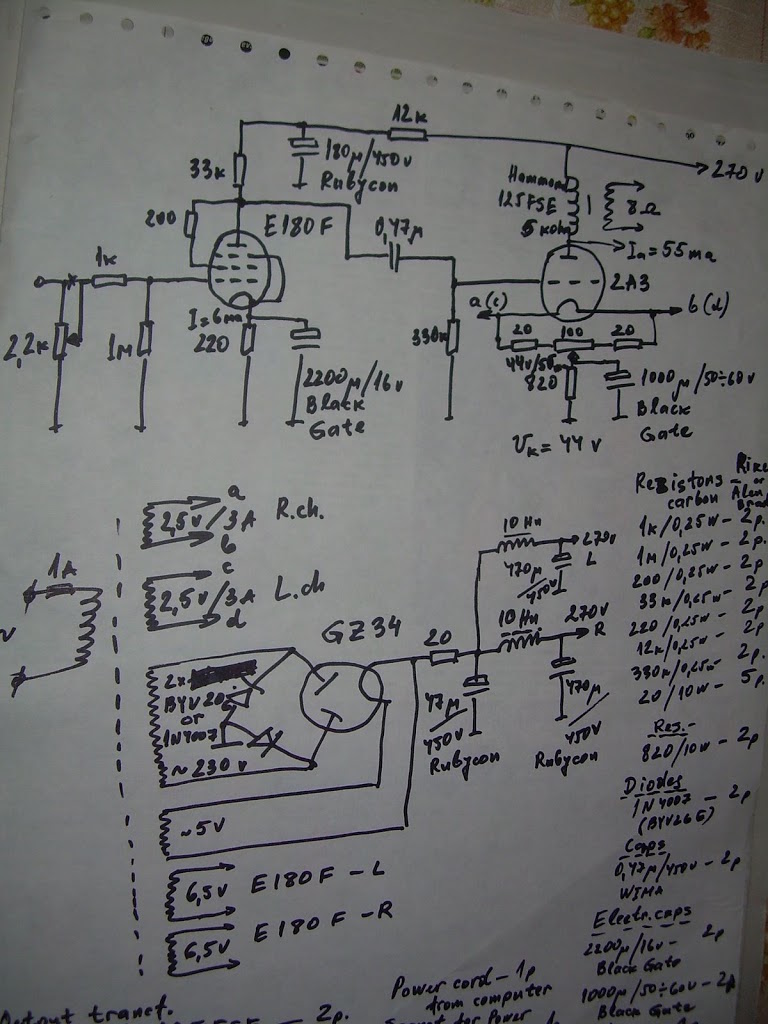 12k
180µ/450v
Rubycon
33k
270v
Hammond
125FSE
5kohm
8Ω
200
E180F
0,47µ
Ia=55ma
1k
2A3
a(c)
b(d)
I=6ma
2,2k
1M
220
330k
20
100
20
44v/55ma
820
2200µ/16v
Black
Gate
1000µ/50÷60v
Black
Gate
Vk=44v
a
2,5v/3A R.ch.
b
c
2,5v/3A L.ch
d
1A
GZ34
2x
BYV26
or
1N4007
~230v
20
10Hn
270v
L
470µ
450v
10Hn
270v
R
47µ
450v
Rubycon
470µ
450v
Rubycon
~5v
6,5v E180F-L
6,5v E180F-R
Resistors -
carbon
or
1k/0,25w - 2p.
1M/0,25w - 2p.
200/0,25w - 2p
33k/0,25w - 2p
220/0,25w - 2p
12k/0,25w - 2p
330k/0,25w - 2p.
20/10w - 5p.
Res.-
820/10w - 2p
Diodes
1N4007 - 2p
(BYV26E)
Caps
0,47µ/450v - 2p
WIMA
Electr.caps
2200µ/16v - 2p
Black Gate
1000µ/50÷60v - 2p
Black Gate
Power cord - 1p
from computer
Output transf.
2p.
for Power